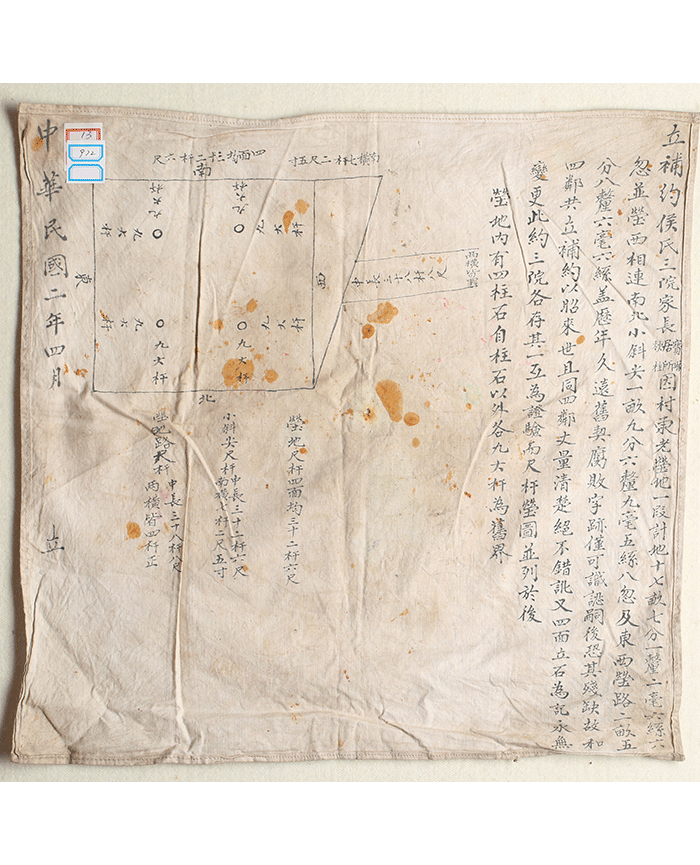 立補約侯氏三院家長居所因村東老塋地一段計地十七畝七分一釐二毫六絲六
忽並塋西相連南北小斜尖一畝九分六釐九毫五絲八忽及東西塋路二畝五
分八釐六毫六絲蓋歷年久遠舊契腐敗字跡僅可識認嗣後恐其殘缺故和
四鄰共立補約以昭來世且同四鄰丈量清楚絕不錯訛又四面立石為記永無
變更此約三院各存其一互為證驗而尺杆塋圖並列於後
塋地內有四柱石自柱石以外各九大杆為舊界
南橫七杆二尺五寸
四面均三十二杆六尺
南
西
中長三十八杆八尺
東
北
九大杆
九大杆
九大杆
九大杆
九大杆
九大杆
九大杆
九大杆
塋地尺杆四面均三十二杆六尺
小斜尖尺杆
中長三十二杆六尺
南橫七杆二尺五寸
塋地路尺杆
中長三十八杆八尺
兩橫皆四杆正
中華民國二年四月 立
13
932